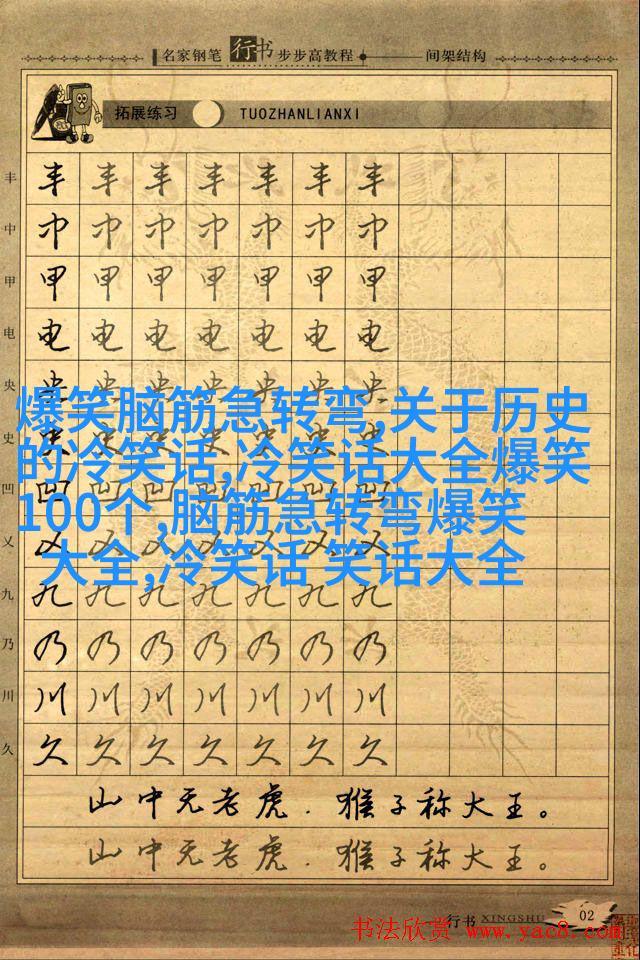 名家钢笔 行书 步步高教程 间架结构
拓展练习 TUOZHANLIANXI
丰 丰 丰 丰 丰 丰 丰 丰
中 中 中 中 中 中 中 中
甲 甲 甲 甲 甲 甲 甲 甲
电 电 电 电 电 电 电 电
央 央 央 央 央 央 央 央
爆笑脑筋急转弯,关于历史
史 史 史 史 史 史 史 史
的冷笑话,冷笑话大全爆笑
凹 凹 凹 凹 凹 凹 凹 凹
100个,脑筋急转弯爆笑
乂 乂 乂 乂 乂 乂 乂 乂
大全,冷笑话 笑话大全
九 九 九 九 九 九 九 九
乃 乃 乃 乃 乃 乃 乃 乃
川 川 川 川 川 川 川 川
久 久 久 久 久 久 久 久
山中无老虎.猴子称大王。
山中无老虎.猴子称大王。
行书 XINGSHU 02
书法欣赏 www.yac8.com